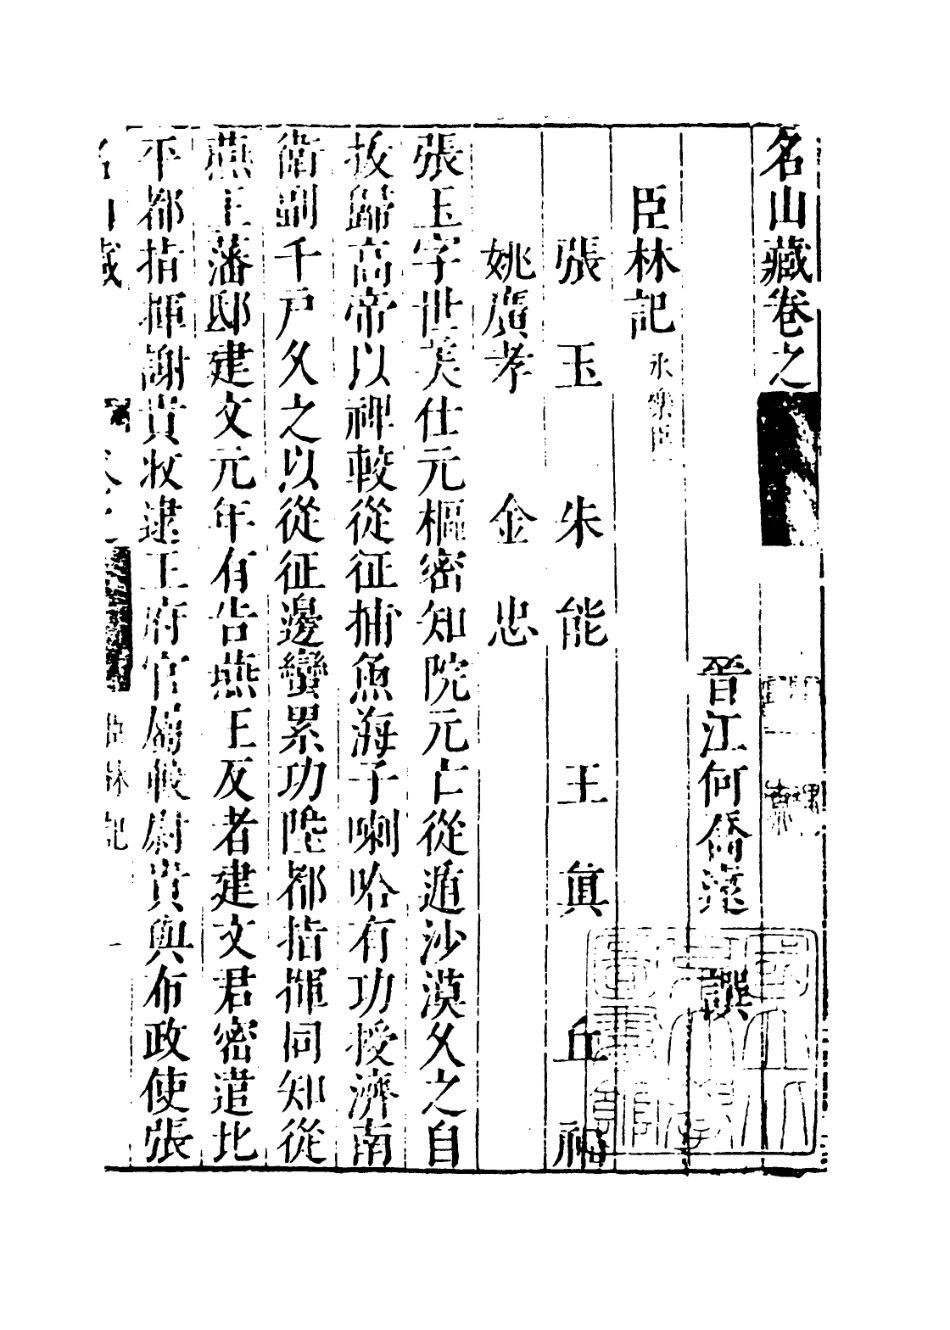 名山藏卷之
晉江何喬遠 譔
臣林記 永樂臣
張玉 朱能 王眞 丘福
姚廣孝 金忠
張玉字世美仕元樞密知院元亡從遁沙漠久之自
拔歸高帝以裨較從征捕魚海子喇哈有功授濟南
衛副千戶久之以從征邊蠻累功陞都指揮同知從
燕王藩邸建文元年有告燕王反者建文君密遣北
平都指揮謝貴收逮王府官屬較尉貴與布政使張
名山藏 卷之 臣林記 一